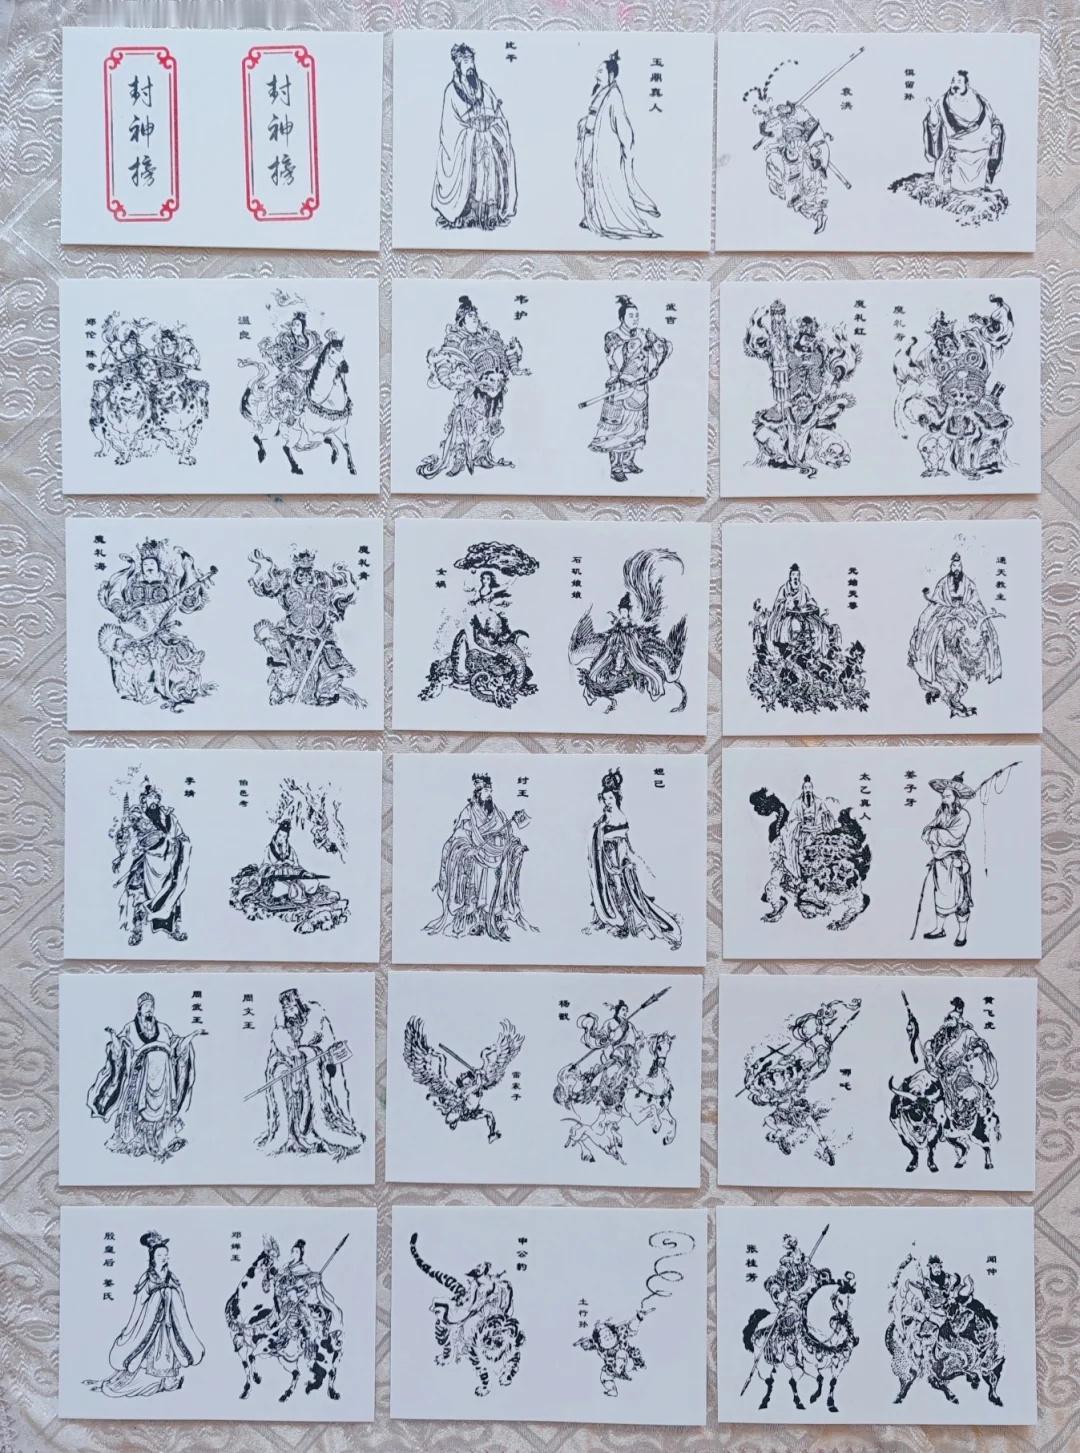 封神榜
封神榜
比干
玉鼎真人
袁洪
惧留孙
郑伦 陈奇
温良
韦护
武吉
魔礼红
魔礼寿
魔礼海
魔礼青
女娲
石矶娘娘
元始天尊
通天教主
李靖
伯邑考
纣王
妲己
太乙真人
姜子牙
周武王
周文王
雷震子
杨戬
哪吒
黄飞虎
殷皇后 姜氏
邓婵玉
申公豹
土行孙
张桂芳
闻仲